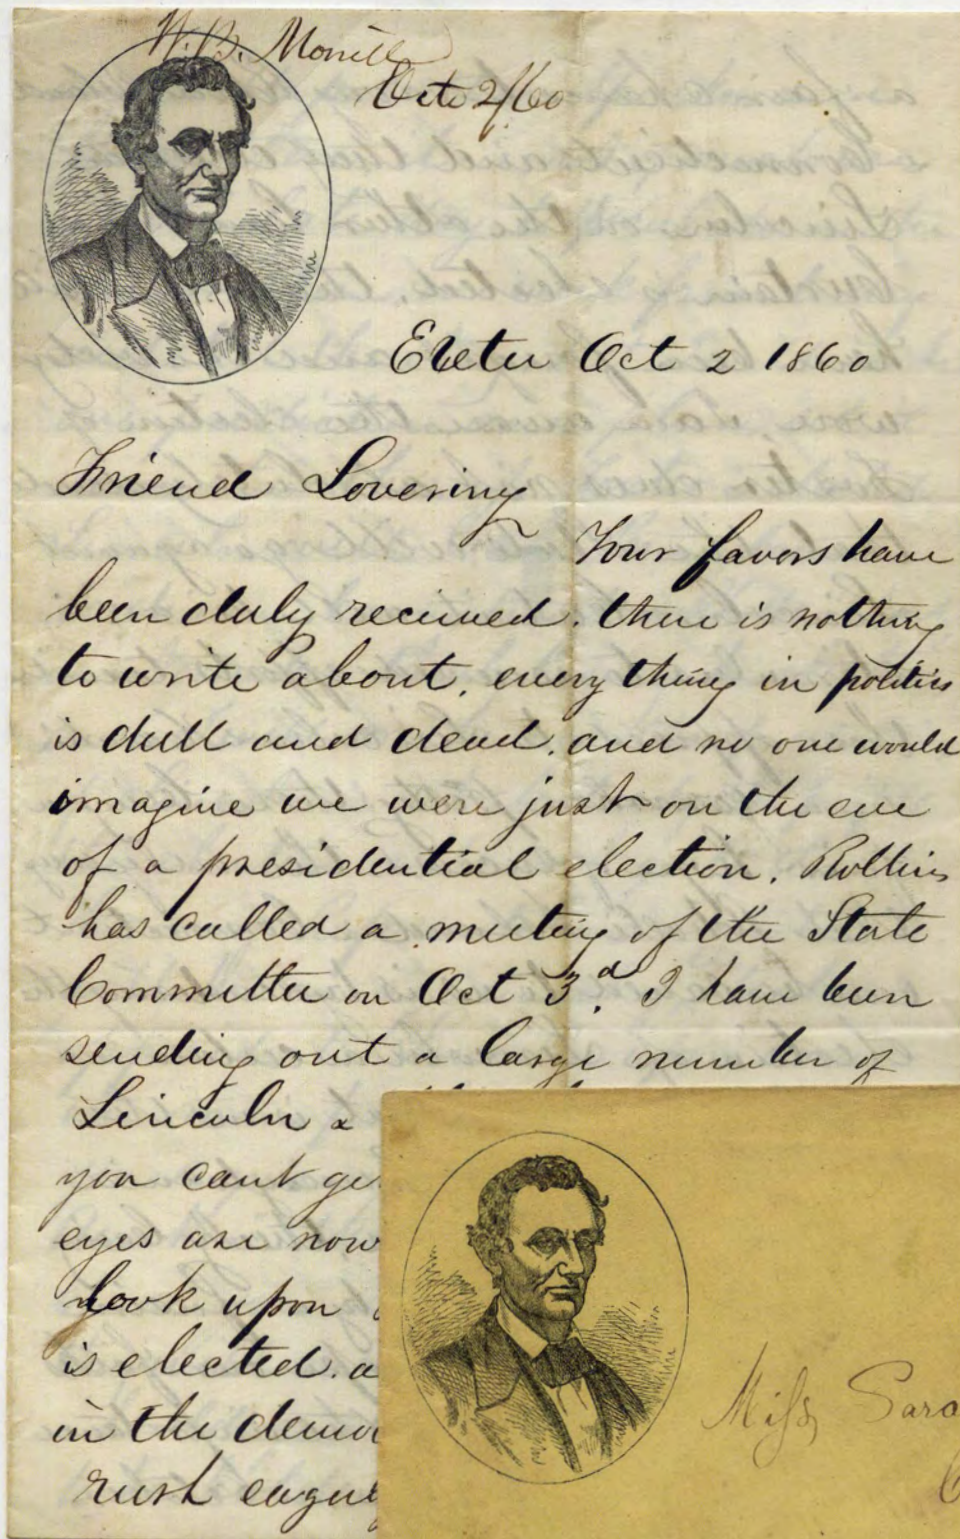 W. B. Morrill
Oct 2/60
Exeter Oct 2 1860
Friend Lovering
Your favors have
been duly recieved. there is nothing
to write about. every thing in politics
is dull and dead. and no one would
imagine we were just on the eve
of a presidential election. Rollins
has called a meeting of the State
Committee on Oct 3d. I have been
sending out a large number of
Lincoln &
you cant ge
eyes are now
look upon
is elected. a
in the demo
rush
Miss Sara